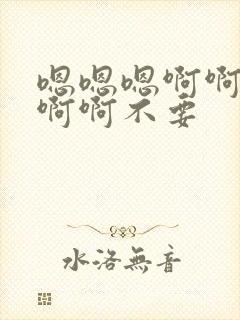 嗯嗯嗯啊啊
啊啊不要
水洛無音